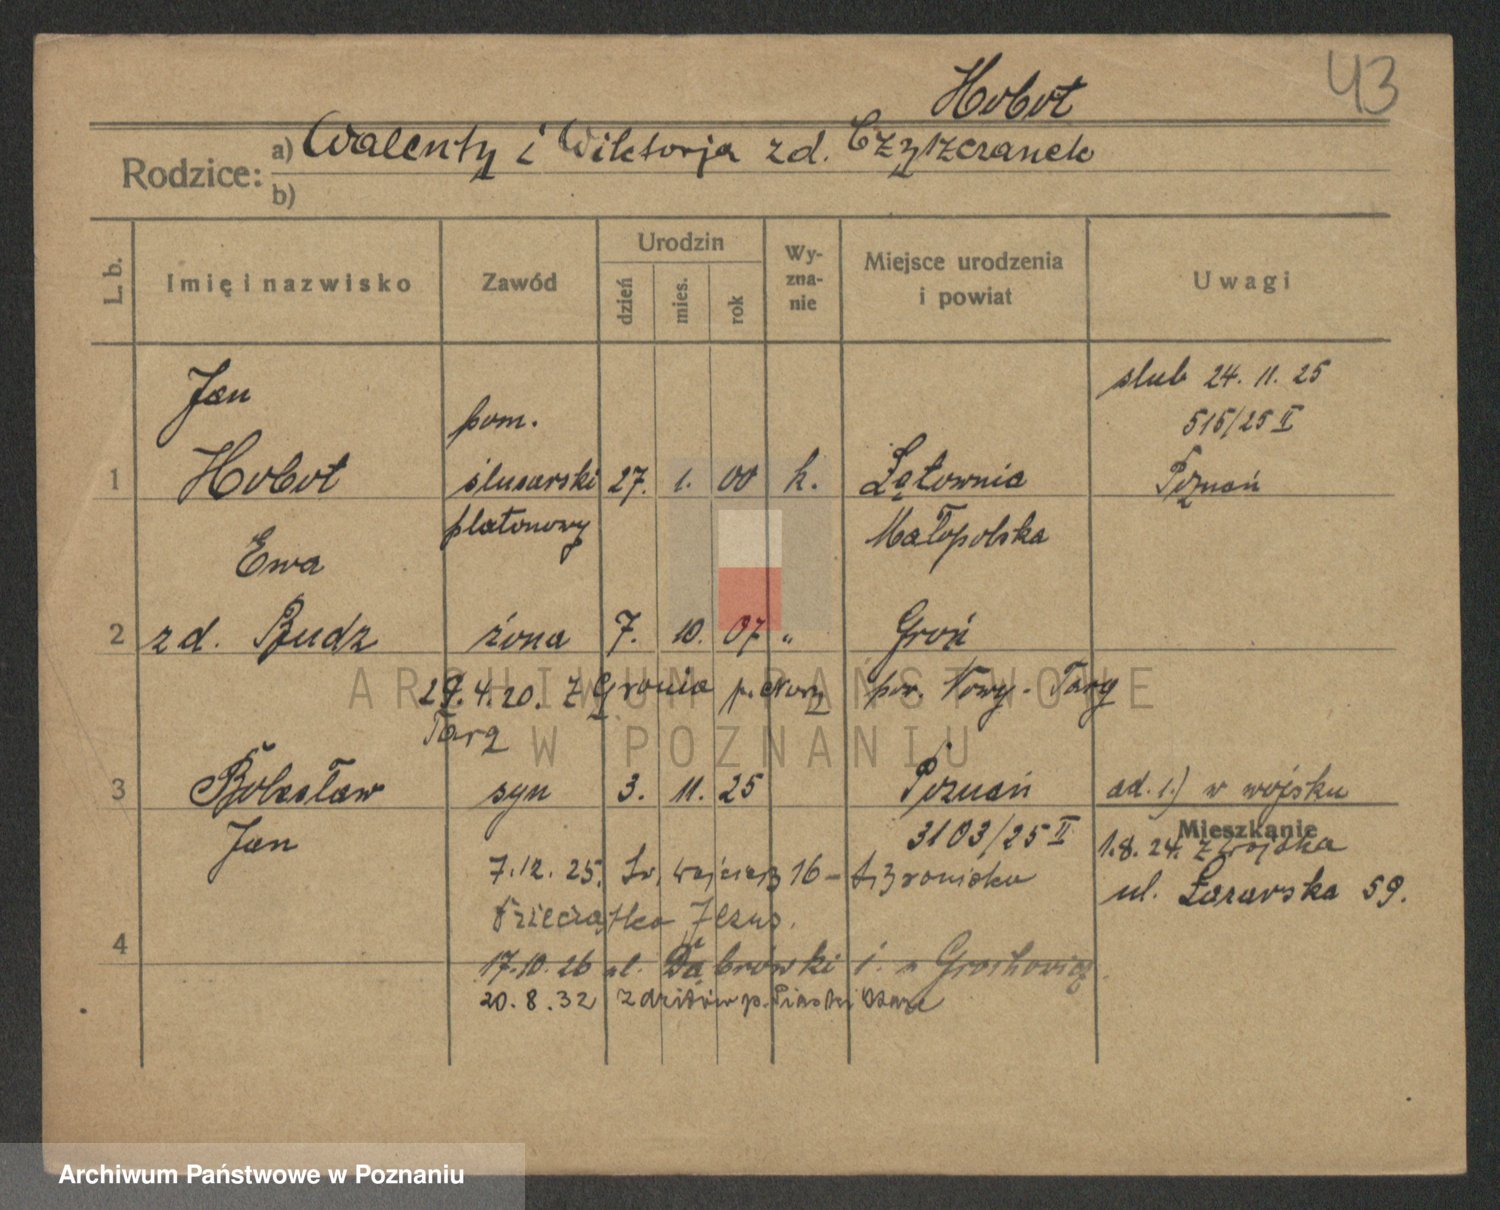 Hobot
43
Rodzice: a) Walenty i Wiktorja zd. Czyszczanek
b)
L. b.
Imię i nazwisko
Zawód
Urodzin
dzień
mies.
rok
Wy-
zna-
nie
Miejsce urodzenia
i powiat
Uwagi
Jan
pom.
ślub 24. 11. 25
515/25 II
1 Hobot ślusarski 27. 1. 00 k. Łętownia Poznań
platonowy Małopolska
Ewa
2 zd. Budz żona 7. 10. 07 " Groń
29.4.20. z Gronia p. Nowy pow. Nowy-Targ
Targ
3 Bolesław syn 3. 11. 25 Poznań ad. 1.) w wojsku
Jan 3103/25 II
Mieszkanie
1.8.24. z wojska
7.12.25. Św. Wojciech 16 -
ul. Łazarska 59.
Jezus.
4
17.10.26 ul. Dąbrówki
20.8.32
ARCHIWUM PAŃSTWOWE
W POZNANIU
Archiwum Państwowe w Poznaniu